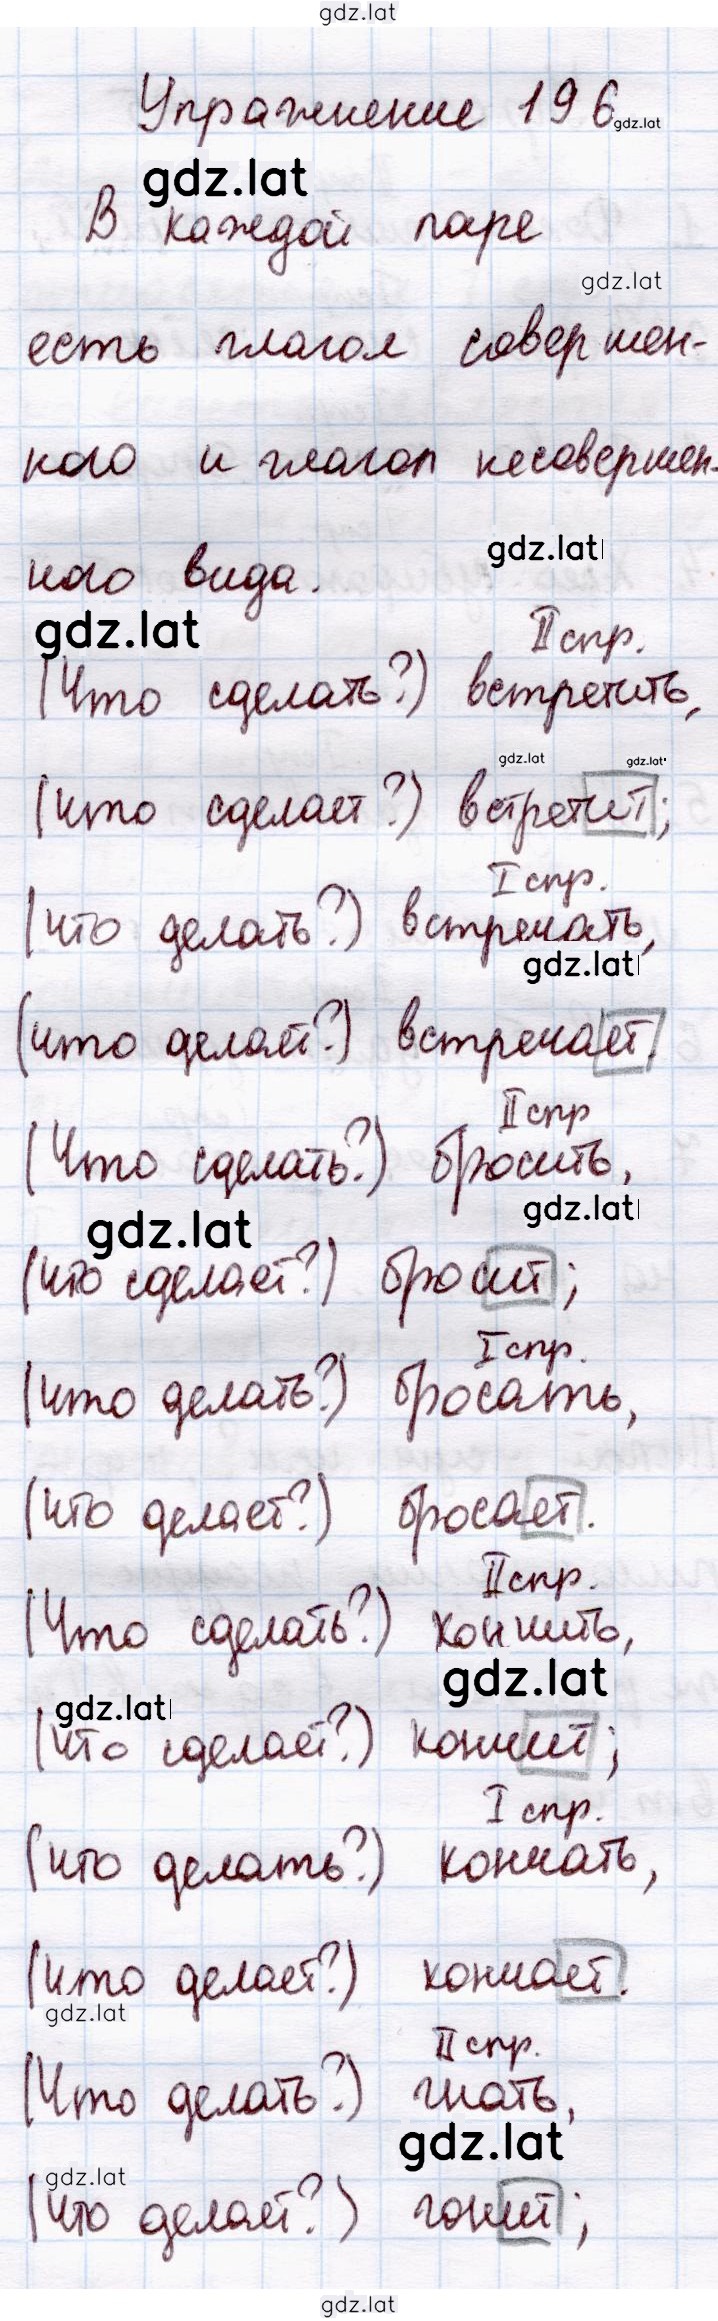 gdz.lat
Упражнение 196
gdz.lat
gdz.lat
В каждой паре
gdz.lat
есть глагол совершен-
ного и глагол несовершен-
ного вида.
gdz.lat
gdz.lat
II спр.
(Что сделать?) встретить,
gdz.lat gdz.lat
(что сделает?) встретит;
I спр.
(что делать?) встречать,
gdz.lat
(что делает?) встречает.
II спр
(Что сделать?) бросить,
gdz.lat gdz.lat
(что сделает?) бросит;
I спр.
(что делать?) бросать,
(что делает?) бросает.
II спр.
(Что сделать?) кончить,
gdz.lat gdz.lat
(что сделает?) кончит;
I спр.
(что делать?) кончать,
(что делает?) кончает.
gdz.lat
II спр.
(Что делать?) гнать,
gdz.lat
gdz.lat
(что делает?) гонит;
gdz.lat